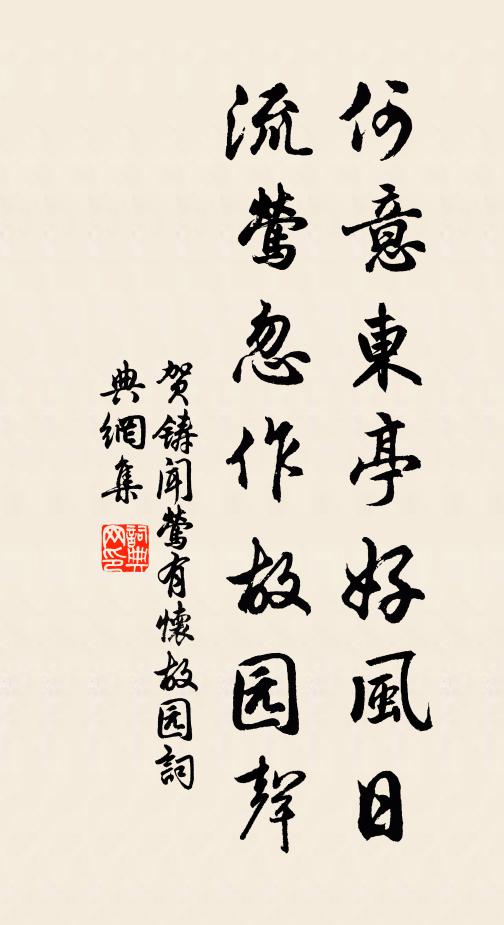 何意東亭好風日
流鶯忽作故园聲
贺鑄闻鶯有懷故园詞
典網集
詞典
网印